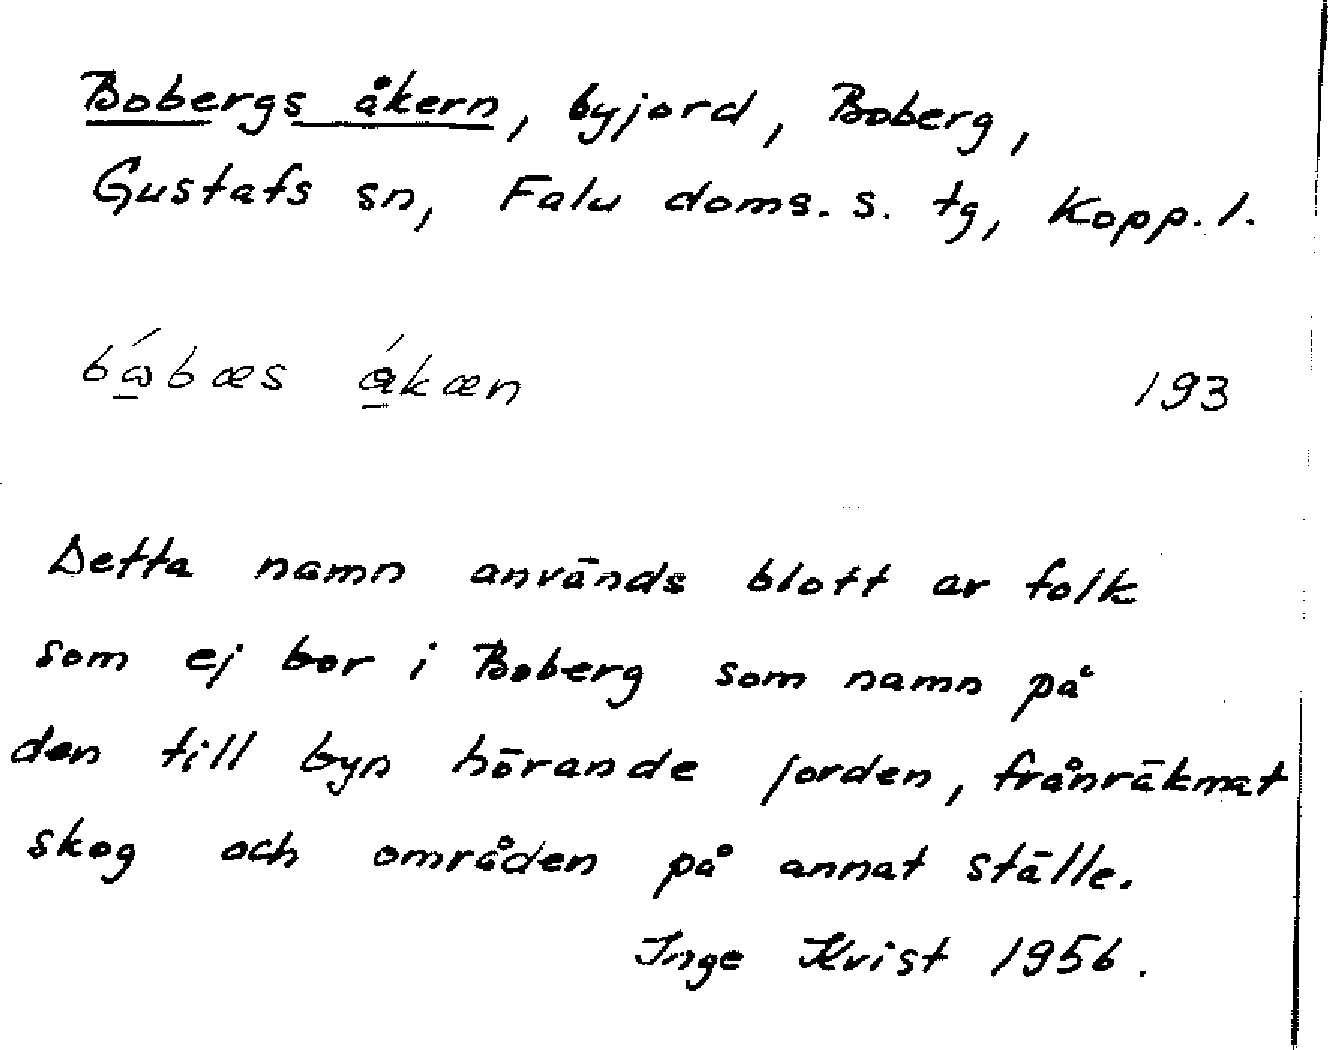 Bobergs åkern, byjord, Boberg,
Gustafs sn, Falu doms. s. tg, Kopp. l.
193
Detta namn används blott av folk
som ej bor i Boberg som namn på
den till byn hörande jorden, frånräknat
skog och områden på annat ställe.
Inge Kvist 1956.